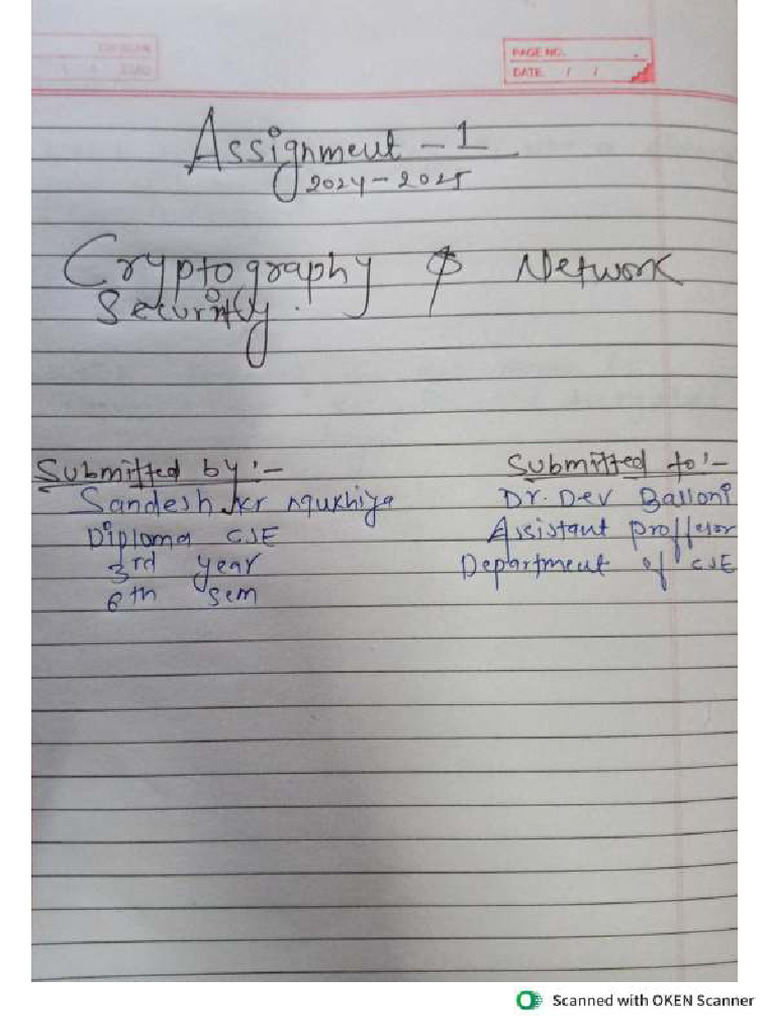 PAGE NO.
DATE / /
Assignment - 1
2024-2025
Cryptography & Network
Security.
Submitted by :-
Sandesh Kr
Diploma CSE
3rd year
6th sem
Submitted to :-
Dr. Dev Balloni
Assistant proffesor
Department of CSE
Scanned with OKEN Scanner